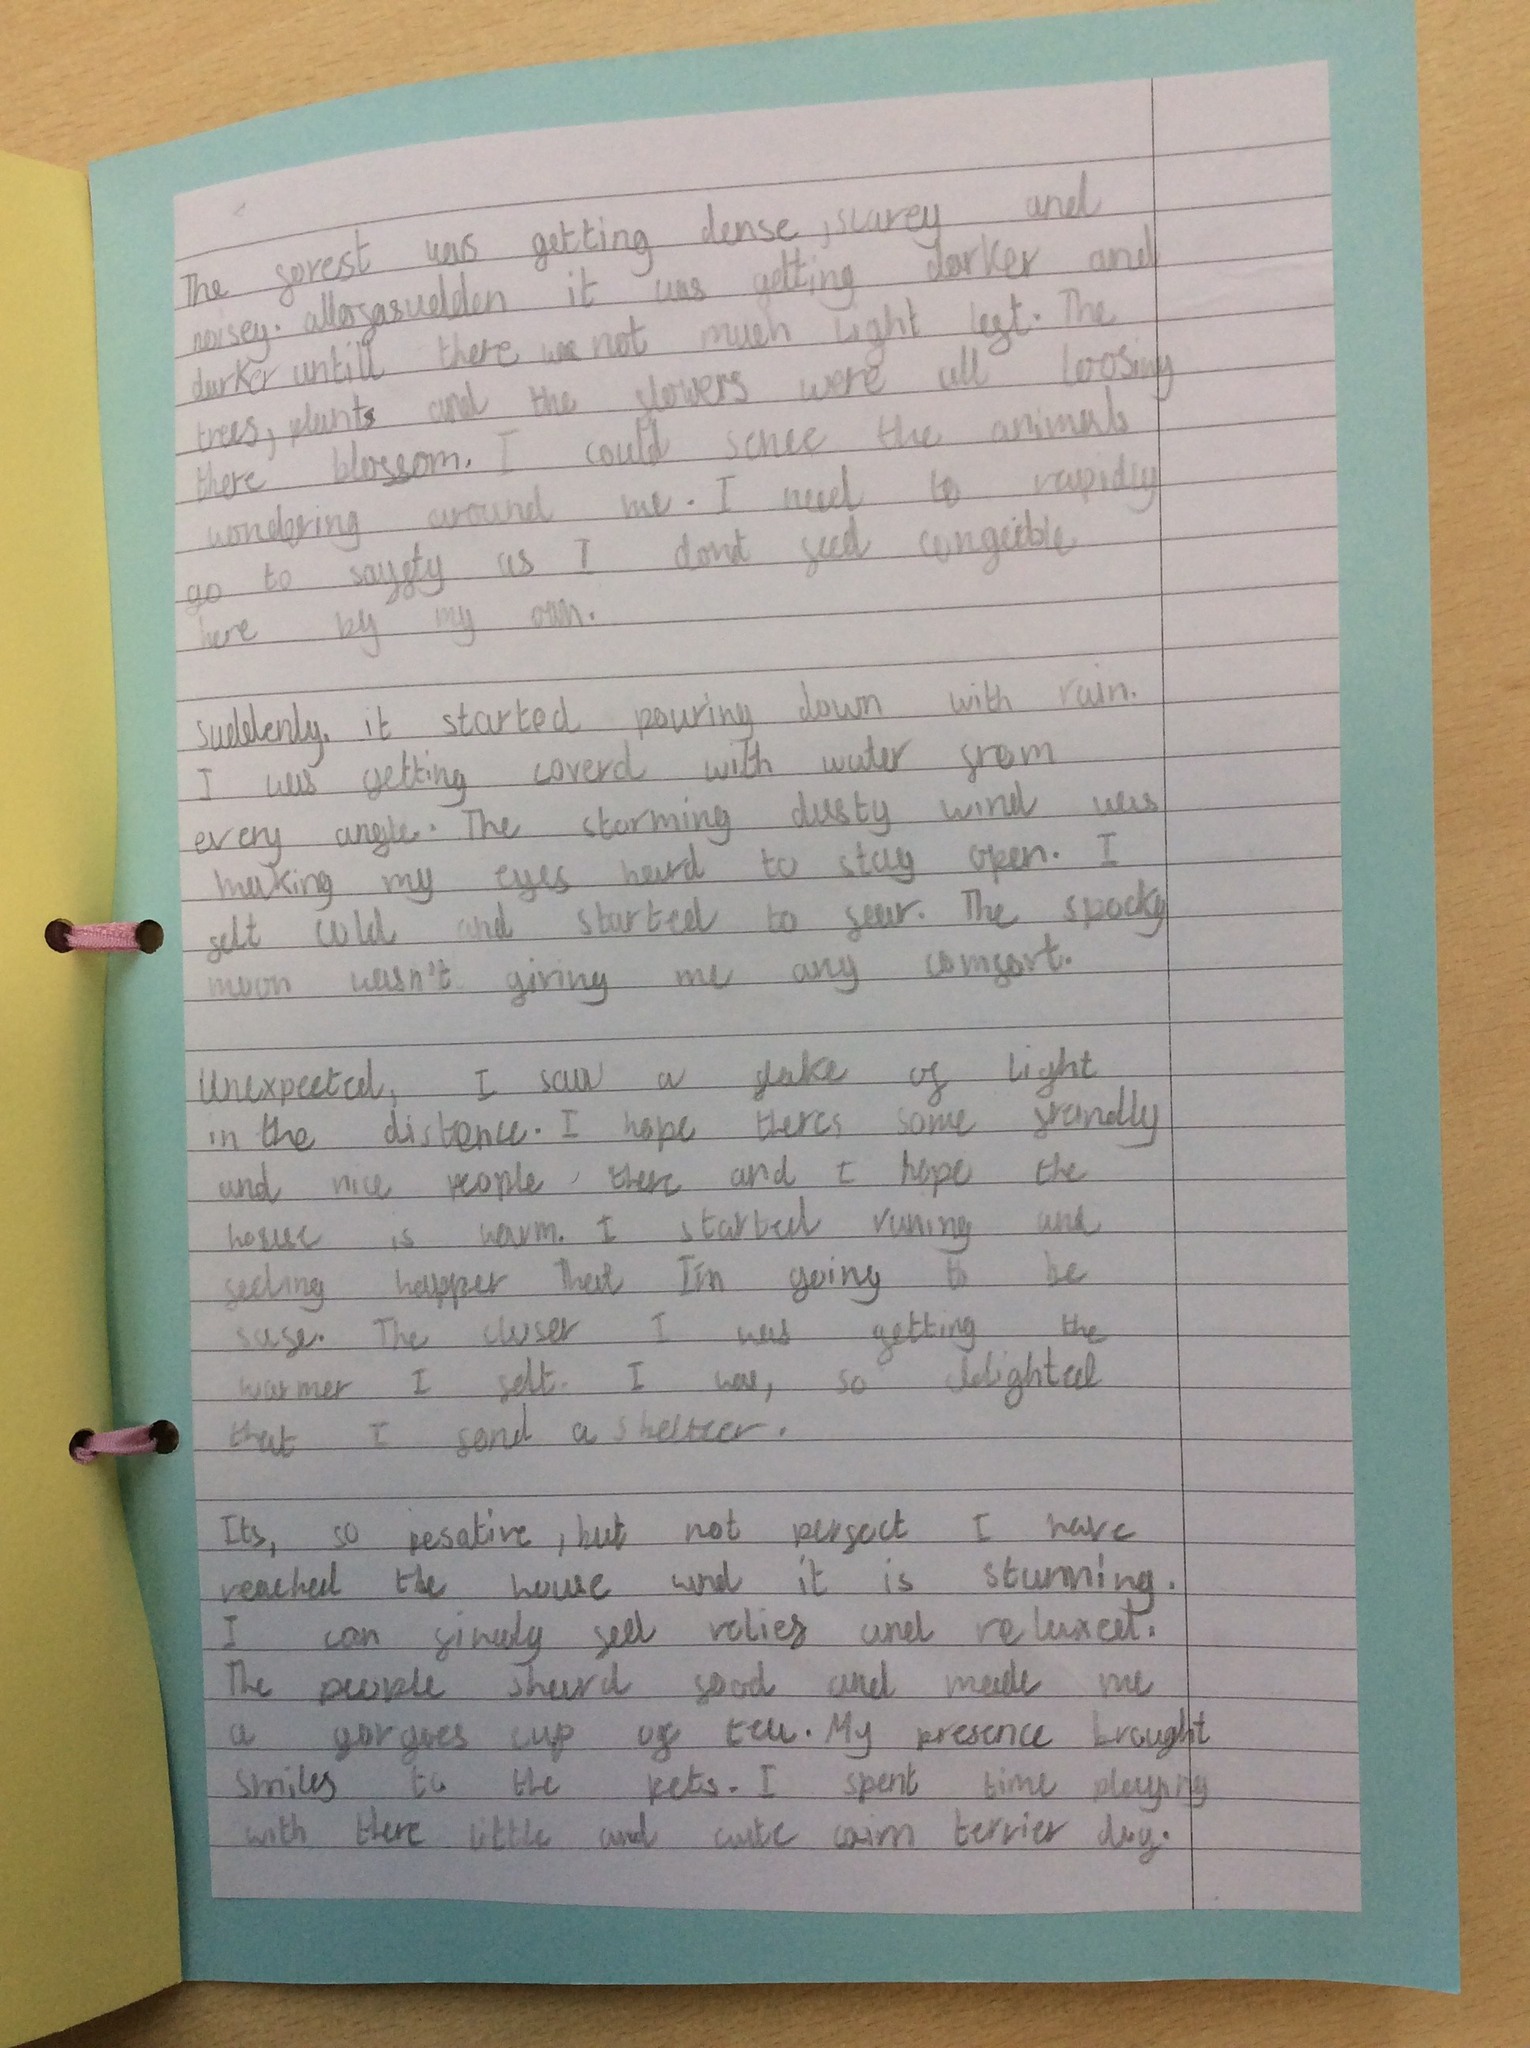 The forest was getting dense, scarey and
noisey. allofasuedden it was getting darker and
darker untill there was not much light left. The
trees, plants and the flowers were all loosing
there blossom. I could sence the animals
wondering around me. I need to rapidly
go to sayfty as I dont feel
here by my own.
Suddenly, it started pouring down with rain.
I was getting coverd with water from
every angle. The storming dusty wind was
making my eyes heard to stay open. I
felt cold and started to fear. The spocky
moon wasn't giving me any comfort.
Unexpected, I saw a flake of light
in the distence. I hope theres some frandly
and nice people there and I hope the
house is warm. I started runing and
feeling happer that I'm going to be
safe. The closer I was getting the
warmer I felt. I was, so delighted
that I fond a shelteer.
Its, so posative, but not perfect I have
reached the house and it is stunning.
I can finaly feel relief and relaxed.
The people sheard food and made me
a gorgoes cup of tea. My presence brought
smiles to the pets. I spent time playing
with there little and cute cairn terrier dog.